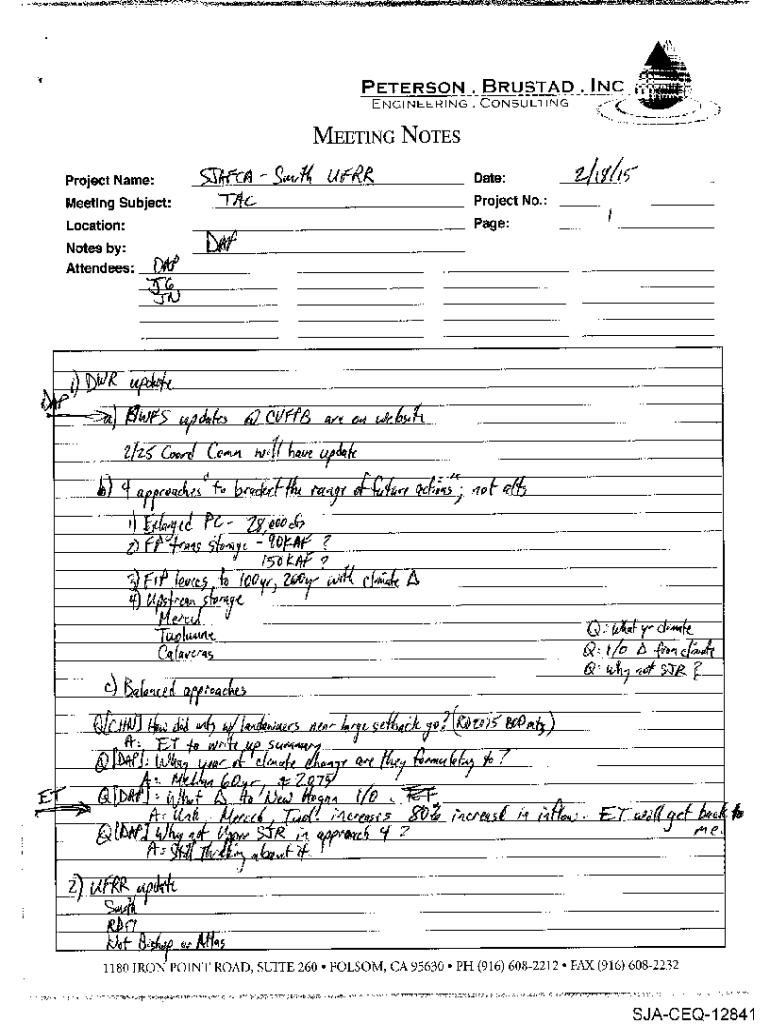 PETERSON . BRUSTAD . INC
ENGINEERING . CONSULTING
MEETING NOTES
Project Name: SJAFCA - Smith UFRR Date: 2/18/15
Meeting Subject: TAC Project No.:
Location: Page: 1
Notes by: DAP
Attendees: DAP
JG
JN
1) DWR update
DAP
a) BWFS updates @ CVFPB are on website
2/25 Coord Comm will have update
b) 4 approaches "to bracket the range of future actions"; not alts
1) Enlarged PC - 28,000 cfs
2) FP trans storage - 90KAF ?
150KAF ?
3) FIP levees to 100yr, 200yr with climate Δ
4) Upstream storage
Merced
Tuolumne
Calaveras
Q: What yr climate
Q: I/O Δ from climate
Q: Why not SJR ?
c) Balanced approaches
Q[CHN] How did mtg w/ landowners near large setback go? (RD2075 BOD mtg)
A: ET to write up summary
Q [DAP]: What year of climate change are they formulating to?
A: Median 60yr, ± 2075
ET
Q [DAP]: What Δ to New Hogan I/O.
A: Unk. Merced, Tuol. increases 80% increase in inflow. ET will get back to
me.
Q [DAP] Why not Upper SJR in approach 4 ?
A: Still thinking about it
2) UFRR update
Smith
RD17
Not Bishop or Atlas
1180 IRON POINT ROAD, SUITE 260 • FOLSOM, CA 95630 • PH (916) 608-2212 • FAX (916) 608-2232
SJA-CEQ-12841